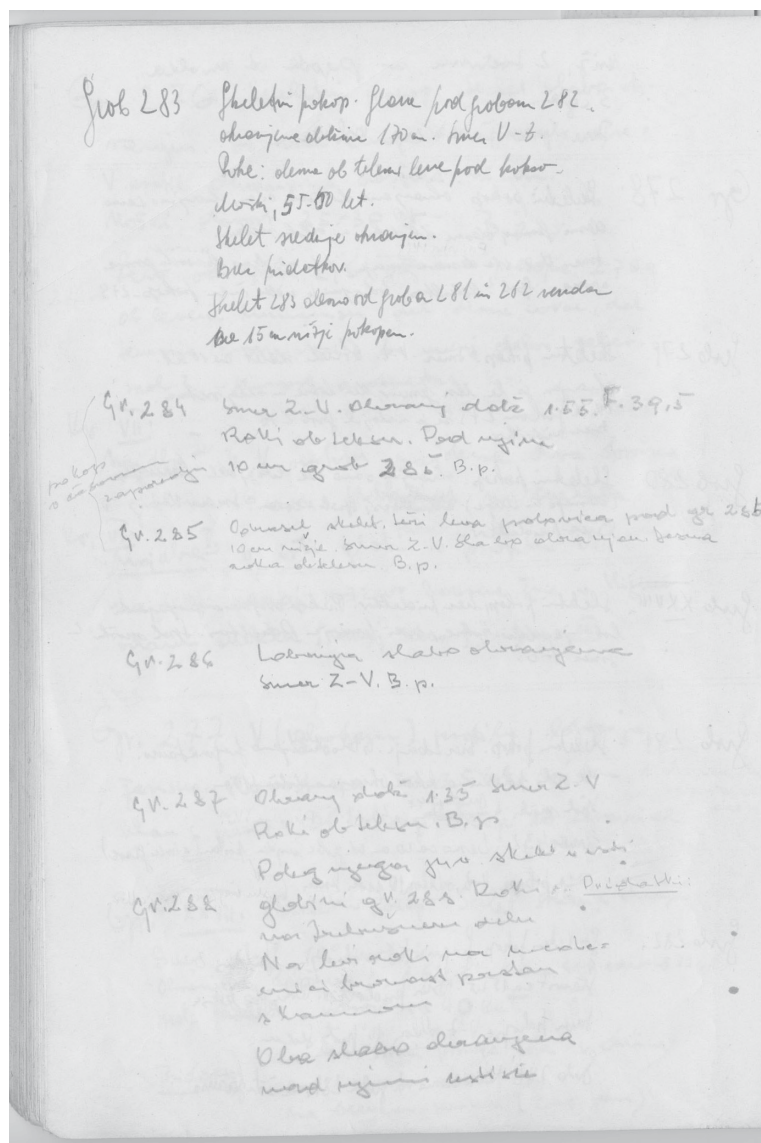 Grob 283 Skeletni pokop. Glava pod grobom 282.
ohranjena dolžina 170 cm. Smer V-Z.
Roke: desna ob telesu leva pod
Moški, 55-60 let.
Skelet srednje ohranjen.
Brez pridatkov.
Skelet 283 desno od groba 281 in 282 vendar
15 cm nižje pokopan.
Gr. 284 Smer Z-V. Ohranj dolž 1.55. F. 39,5
Roki ob telesu. Pod njim
10 cm grob 285. B.p.
pokop
s časovnim
zaporedjem
Gr. 285 skelet. leži leva polovica pod gr 285
10 cm nižje. Smer Z-V. Slabo ohranjen. Desna
roka ob telesu. B.p.
Gr. 286 Lobanja slabo ohranjena
Smer Z-V. B.p.
Gr. 287 Ohranj dolž 1.35 Smer Z-V
Roki ob telesu. B.p
Poleg njega je v skelet v isti
Gr. 288 globini gr. 288. Roki Pridatki:
na trebušnem delu
Na levi roki na
bronast prstan
s
Oba slabo ohranjena
nad njimi